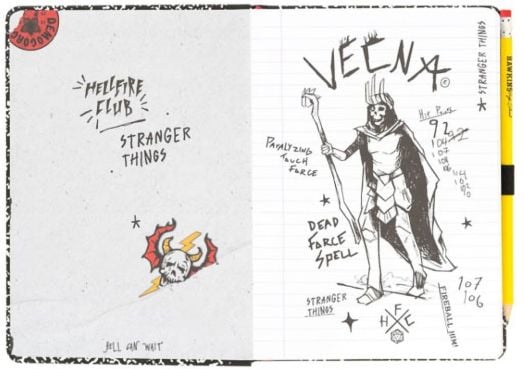 DEMOGORG
HELLFIRE
CLUB
STRANGER
THINGS
HELL CAN WAIT
VECNA
STRANGER THINGS
HAWKINS
HIT POINTS
92
104
107
106
PARALYZING
TOUCH
FORCE
DEAD
FORCE
SPELL
STRANGER
THINGS
H F E
FIREBALL HIM!
107
106